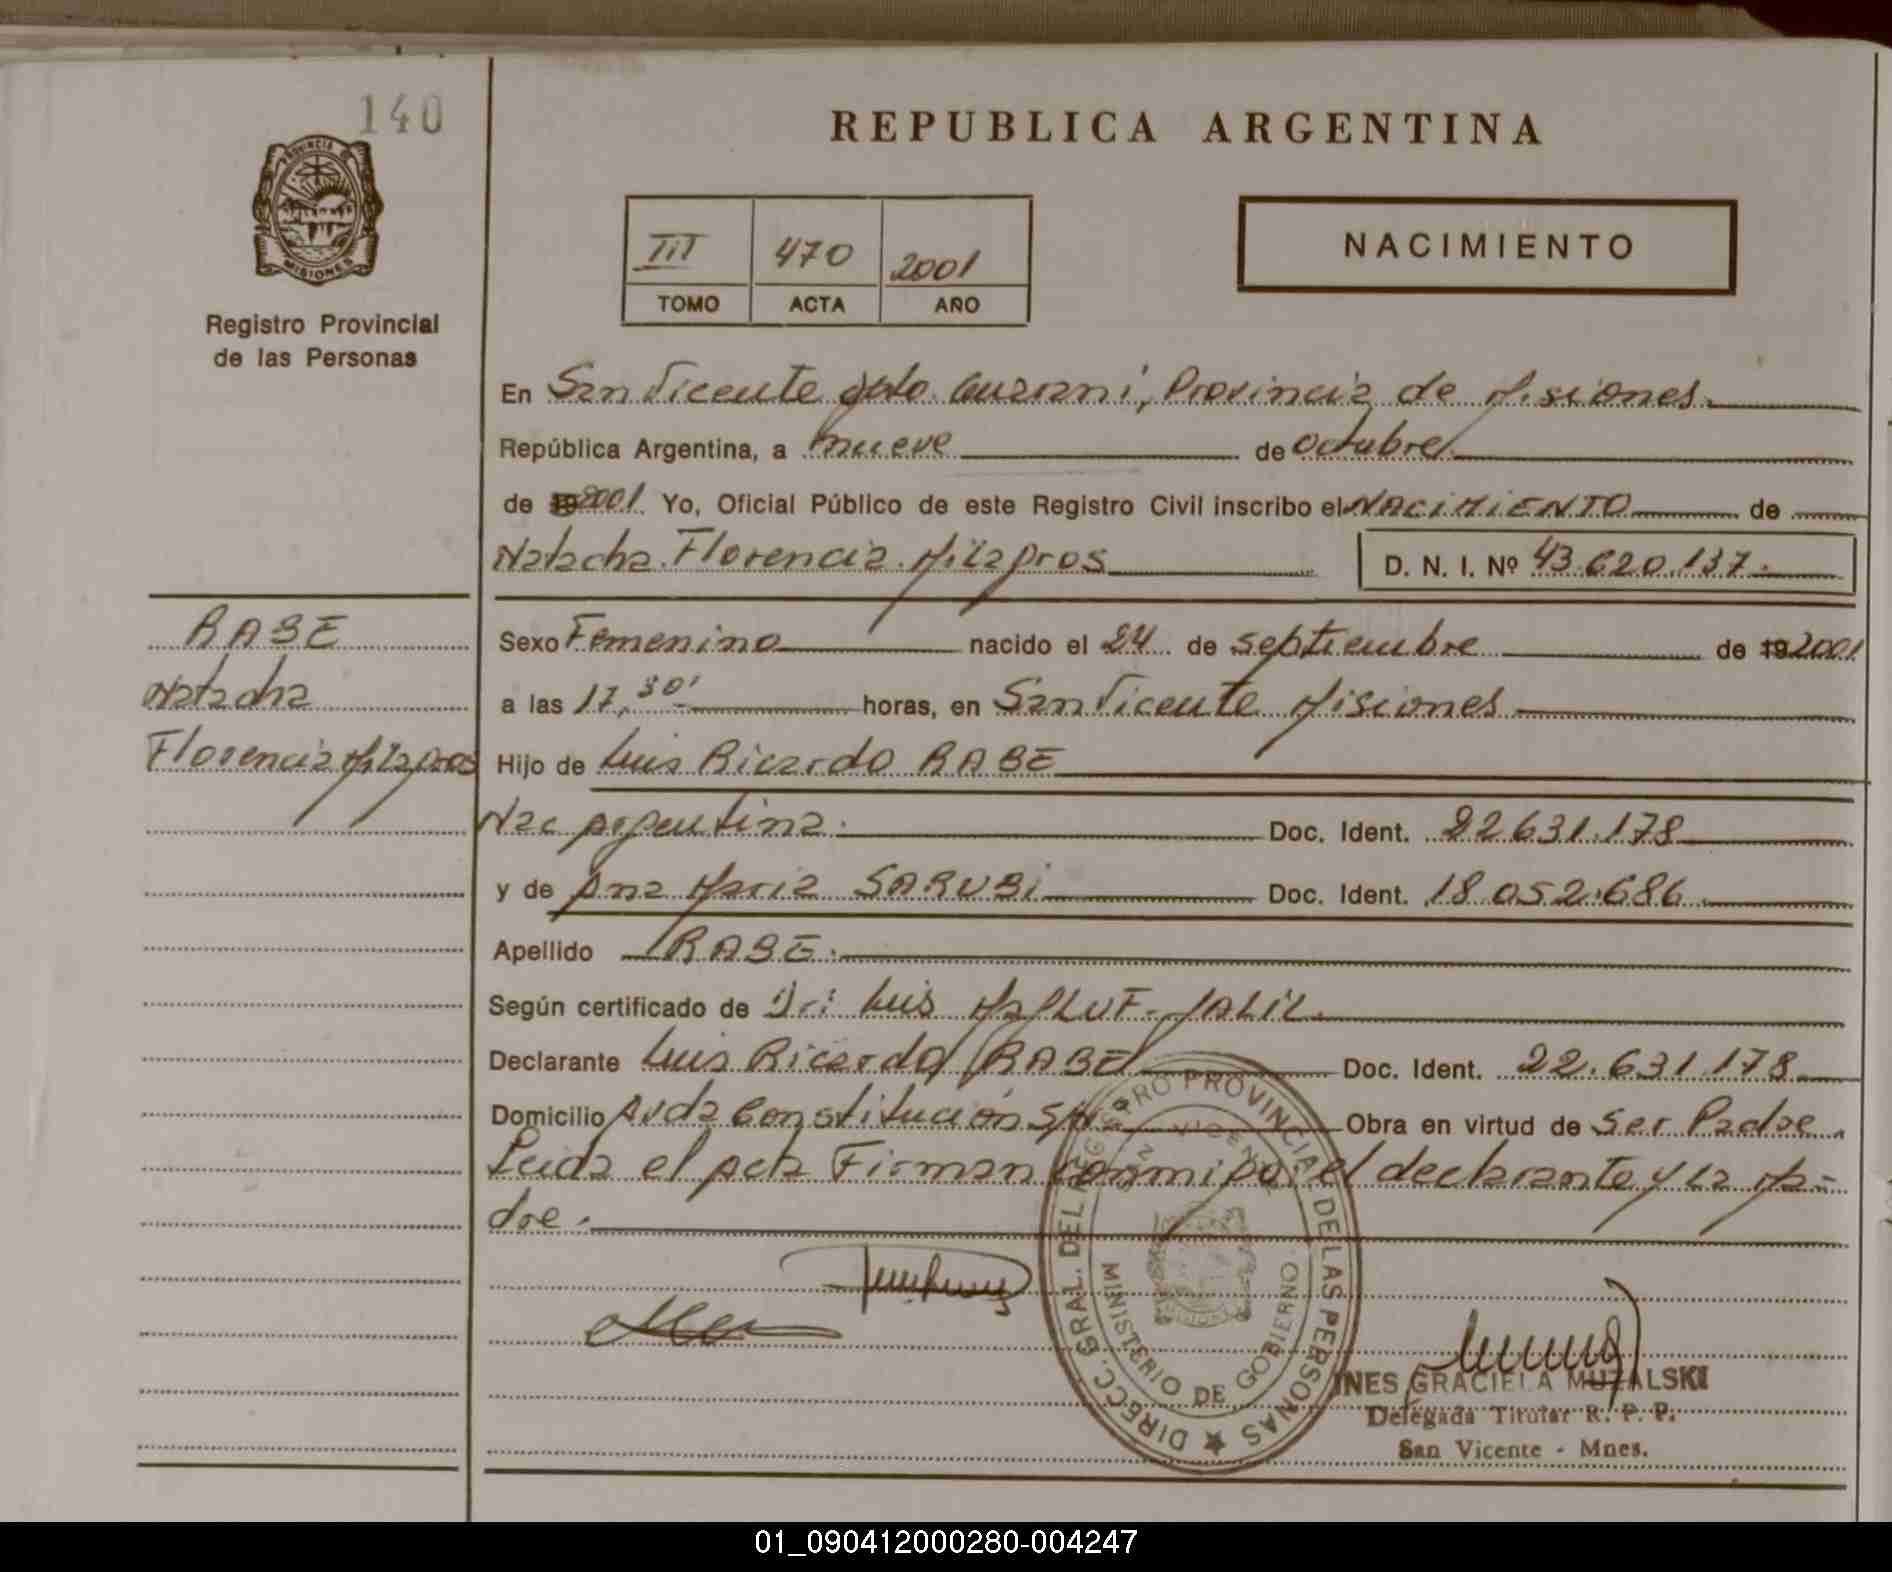 140
PROVINCIA DE
MISIONES
Registro Provincial
de las Personas
REPUBLICA ARGENTINA
III 470 2001
TOMO ACTA AÑO
NACIMIENTO
En San Vicente dpto. Guarani, Provincia de Misiones.
República Argentina, a nueve de octubre
de 19 2001. Yo, Oficial Público de este Registro Civil inscribo el NACIMIENTO de
Natacha Florencia Milagros D. N. I. Nº 43.620.137.-
RABE
Natacha
Florencia Milagros
Sexo Femenino nacido el 24 de septiembre de 19 2001
a las 17,30' horas, en San Vicente Misiones
Hijo de Luis Ricardo RABE
Nac argentina. Doc. Ident. 22.631.178
y de Ana Maria SARUBI Doc. Ident. 18.052.686
Apellido RABE.
Según certificado de Dr: Luis JALIL.
Declarante Luis Ricardo RABE Doc. Ident. 22.631.178
Domicilio Avda Constitución S/Nº Obra en virtud de Ser Padre.
Leida el acta Firman conmigo, el declarante y la ma-
dre.
DIRECC. GRAL. DEL REGISTRO PROVINCIAL DE LAS PERSONAS
SAN VICENTE
MINISTERIO DE GOBIERNO
INES GRACIELA MUZALSKI
Delegada Titular R. P. P.
San Vicente - Mnes.
01_090412000280-004247